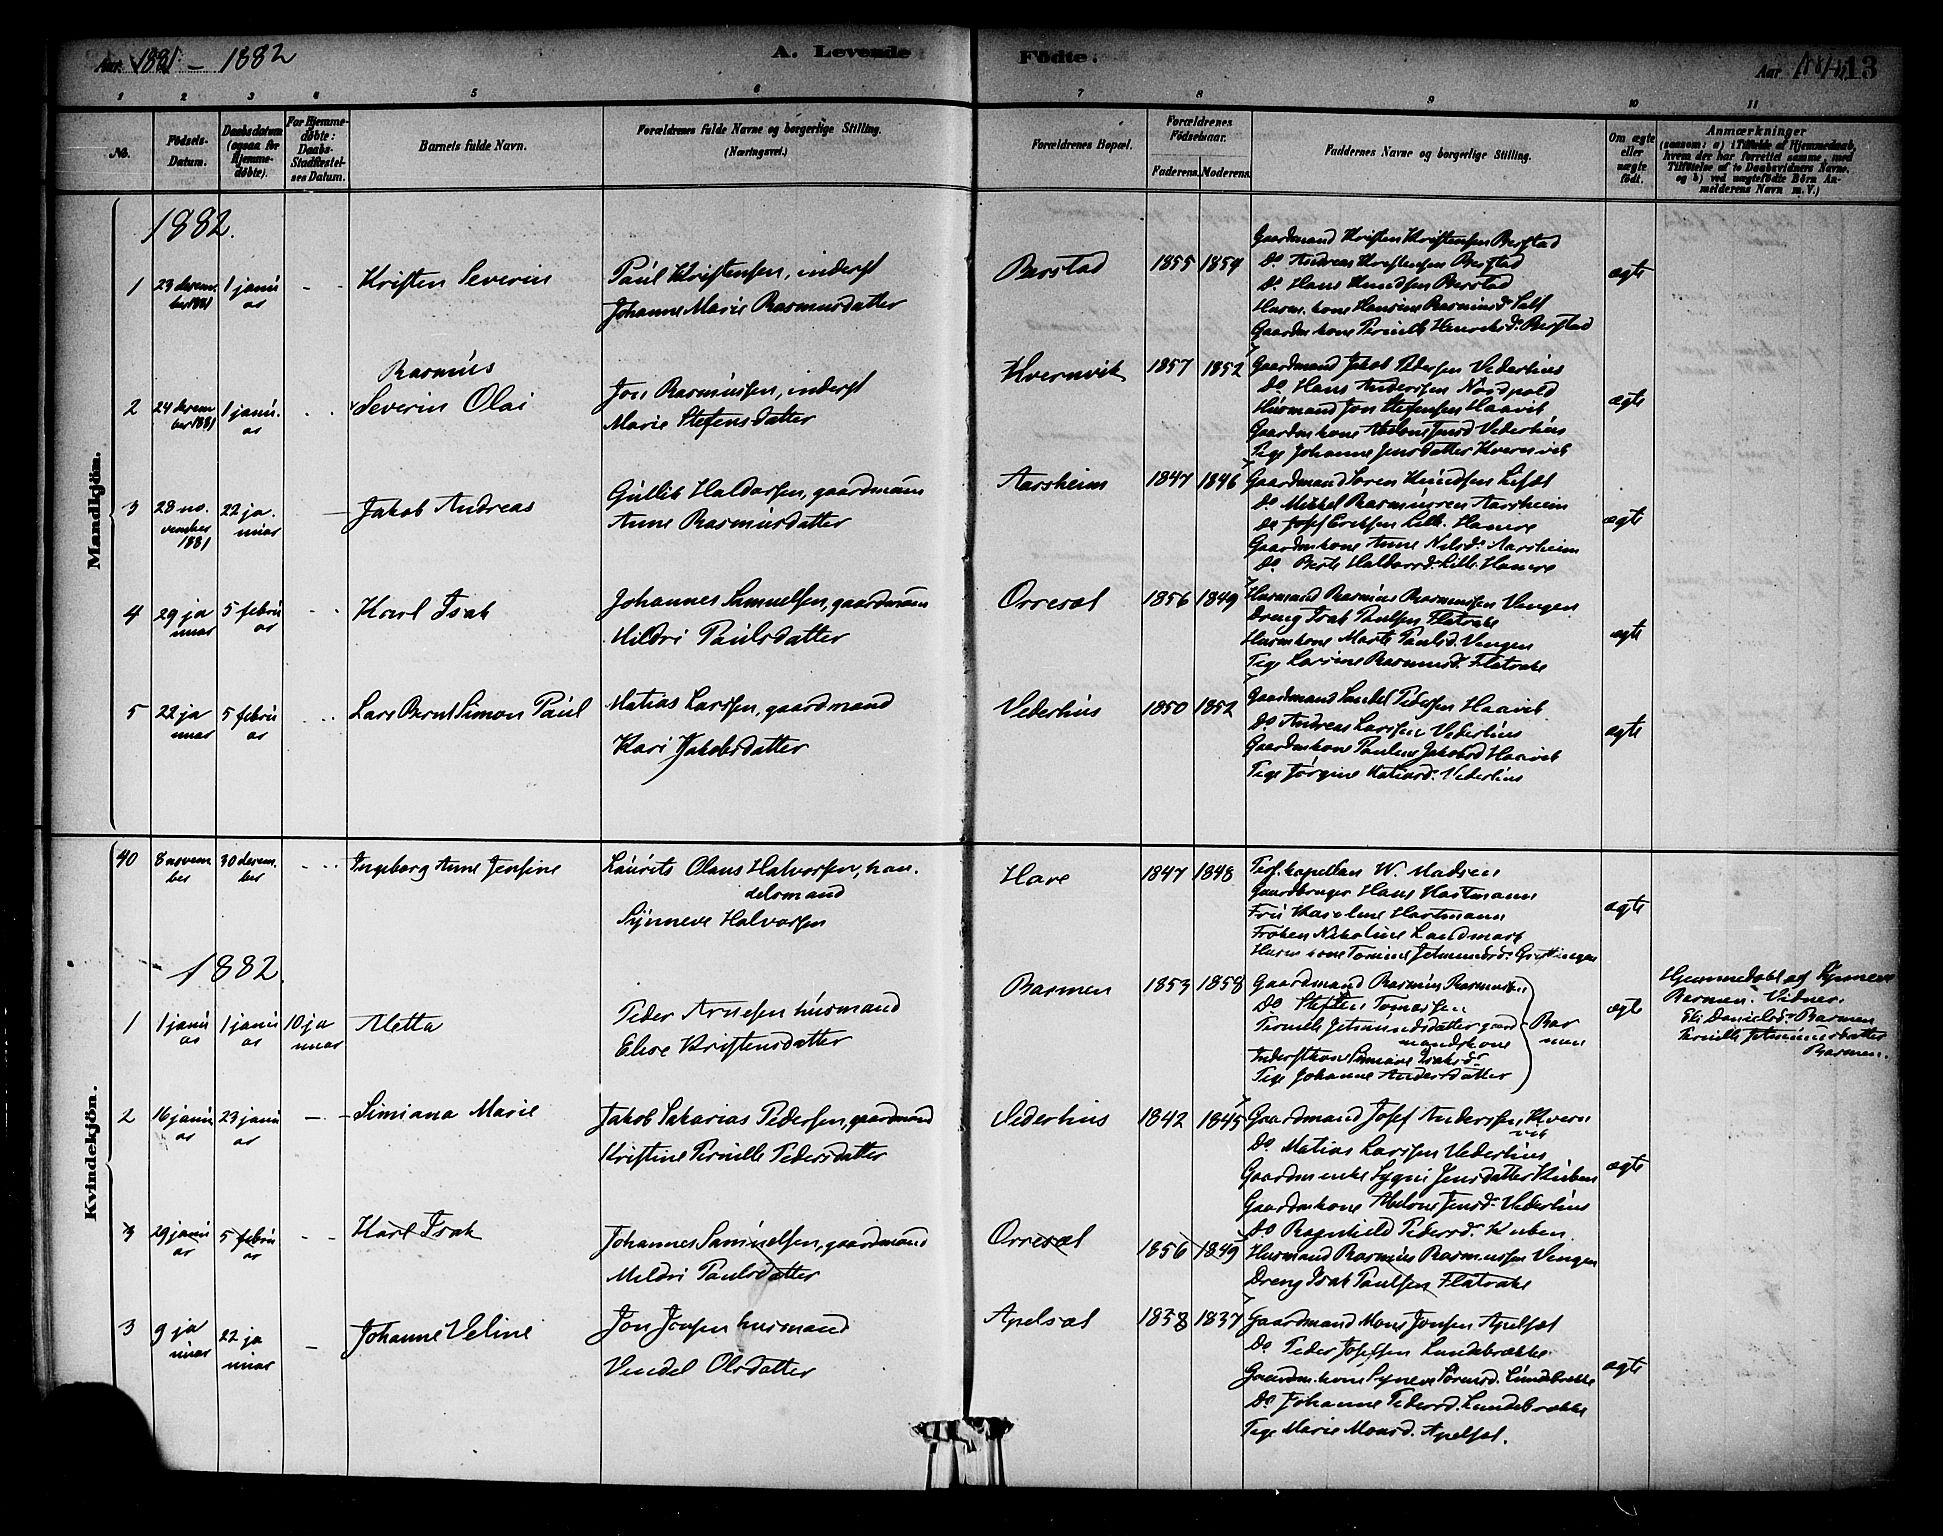 Aar 1881 – 1882
A. Levende
Födte.
Aar 13
1 2 3 4 5 6 7 8 9 10 11
No.
Födsels-
Datum.
Daabsdatum
(ogsaa for
Hjemme-
döbte).
For Hjemme-
döbte:
Daabs-
Stadfæstel-
ses Datum.
Barnets fulde Navn.
Forældrenes fulde Navne og borgerlige Stilling.
(Næringsvei.)
Forældrenes Bopæl.
Forældrenes
Födselsaar.
Faderens. Moderens.
Faddernes Navne og borgerlige Stilling.
Om ægte
eller
uægte
födt.
Anmærkninger
(saasom: a) i Tilfælde af Hjemmedaab,
hvem der har forrettet samme, med
Tilföielse af to Daabsvidners Navne.
og b) ved uægtefödte Börn An-
melderens Navn m. V.)
Mandkjön.
1882.
1 23 decem
ber 1881
1 janu
ar
Kristen Severin
Paul Kristensen, inderst
Johanne Marie Rasmusdatter
Berstad
1855 1859
Gaardmand Kristen Kristensen Berstad
Do Andreas Kristensen Berstad
Do Hans Knudsen Berstad
Husm. kone Hansine Rasmusd.
Gaardm kone Pernille Henriksd. Berstad
ægte
2 24 decem
ber 1881
1 janu.
ar
Rasmus
Severin Olai
Jon Rasmussen, inderst
Marie Stefensdatter
Kvernvik
1857 1852
Gaardmand Jakob Pedersen Vederhus
Do Hans Anderssen Nordpold
Husmand Jon Stefensen Haavik
Gaardm kone Abelone Jensd Vederhus
Pige Johanne Jensdatter Kvernvik
ægte
3 28 no.
vember
1881
22 ja.
nuar
Jakob Andreas
Gullik Haldorsen, gaardmann
Anne Rasmusdatter
Aarsheim
1847 1846
Gaardmand Soren Knudsen
Do Mikkel Rasmussen Aarsheim
Do Josef Eriksen Lille Hamre
Gaardm kone Anne Nilsd. Aarsheim
Do Berte Haldorsd. Lille Hamre
ægte
4 29 ja
nuar
5 febru
ar
Karl Isak
Johannes Samuelsen, gaardmann
Mildri Paulsdatter
Orresæt
1856 1849
Husmand Rasmus Rasmussen Vengen
Dreng Isak Paulsen Flatrake
Husmkone Marte Paulsd. Vengen
Pige Larine Rasmusd. Flatrake
ægte
5 22 ja
nuar
5 febru
ar
Lars Bernt Simon Paul
Matias Larssen, gaardmand
Kari Jakobsdatter
Vederhus
1850 1852
Gaardmand Pedersen Haavik
Do Andreas Larssen Vederhus
Gaardmkone Pauline Jakobsd Haavik
Pige Jørgine Matiasd. Vederhus
ægte
Kvindekjön.
40 8 novem
ber
30 decem.
ber
Ingeborg Anne Jensine
Laurits Olaus Halvorsen, han.
delsmand
Synneve Halvorsen
Have
1847 1848
Pers. kapellan W. Madsen
Gaardbruger Hans Hartmann
Fru Karoline Hartmann
Frøken Nikoline Landmark
Husm kone Tomine Jetmundsd.
ægte
1882.
1 1 janu
ar
1 janu
ar
10 ja
nuar
Aletta
Peder Arnesen husmand
Elise Kristensdatter
Barmen
1853 1858
Gaardmand Rasmus Rasmussen
Do Steffen Tomassen
Pernille Jetmundsdatter gaard
mandskone
Inderstkone Synneve Isaksdr
Pige Johanne Andersdatter
Bar
men
ægte
Hjemmedøbt af Synneve
Barmen. Vidner:
Eli Danielsd. Barmen
Pernille Jetmundsdatter
Barmen.
2 16 janu
ar
23 janu
ar
Simiana Marie
Jakob Sakarias Pedersen, gaardmand
Kristine Pernille Pedersdatter
Vederhus
1842 1845
Gaardmand Josef Anderssen, Kvern
vik
Do Matias Larssen Vederhus
Gaardm enke Sygni Jensdatter Kuben
Gaardmkone Abelone Jensd. Vederhus
Do Ragnhild Pedersd. Kuben
ægte
3 29 janu
ar
5 febru
ar
Karl Isak
Johannes Samuelsen, gaardmand
Mildri Paulsdatter
Orresæt
1856 1849
Husmand Rasmus Rasmussen Vengen
Dreng Isak Paulsen Flatrake
3 9 ja
nuar
22 ja
nuar
Johanne Veline
Jon Jonsen husmand
Vendel Olsdatter
Apelsæt
1838 1837
Gaardmand Mons Jonsen Apelsæt
Do Peder Josefsen Lundebrække
Gaardm. kone Synneve Sørensd. Lundebrekke
Do Johanne Pedersd. Lundebrække
Pige Marie Monsd. Apelsæt.
ægte